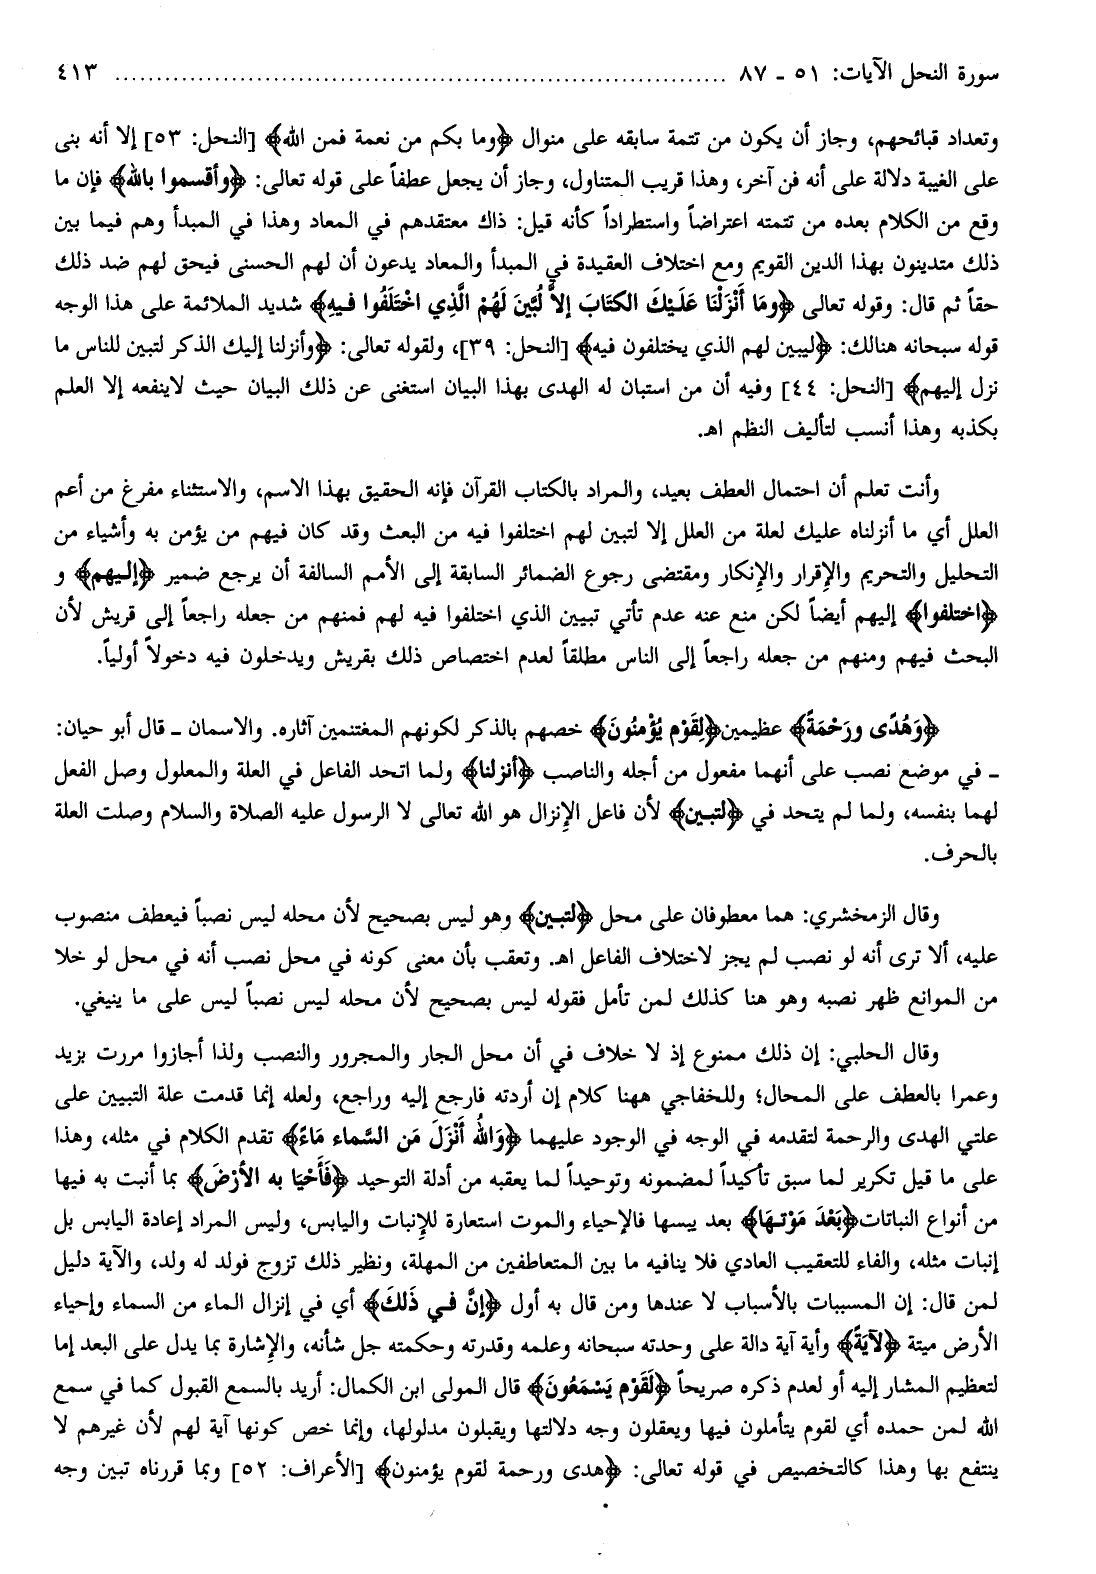 سورة النحل الآيات: ٥١ ـ ٨٧ ........................................................................... ٤١٣
وتعداد قبائحهم، وجاز أن يكون من تتمة سابقه على منوال ﴿وما بكم من نعمة فمن الله﴾ [النحل: ٥٣] إلا أنه بنى
على الغيبة دلالة على أنه فن آخر، وهذا قريب المتناول، وجاز أن يجعل عطفاً على قوله تعالى: ﴿وأقسموا بالله﴾ فإن ما
وقع من الكلام بعده من تتمته اعتراضاً واستطراداً كأنه قيل: ذاك معتقدهم في المعاد وهذا في المبدأ وهم فيما بين
ذلك متدينون بهذا الدين القويم ومع اختلاف العقيدة في المبدأ والمعاد يدعون أن لهم الحسنى فيحق لهم ضد ذلك
حقاً ثم قال: وقوله تعالى ﴿ومَا أَنْزَلْنَا عَلَيْكَ الكتَابَ إلاَّ لُبَيِّنَ لَهُمْ الَّذِي اخْتَلَفُوا فيهِ﴾ شديد الملائمة على هذا الوجه
قوله سبحانه هنالك: ﴿ليبين لهم الذي يختلفون فيه﴾ [النحل: ٣٩]، ولقوله تعالى: ﴿وأنزلنا إليك الذكر لتبين للناس ما
نزل إليهم﴾ [النحل: ٤٤] وفيه أن من استبان له الهدى بهذا البيان استغنى عن ذلك البيان حيث لاينفعه إلا العلم
بكذبه وهذا أنسب لتأليف النظم اهـ.
وأنت تعلم أن احتمال العطف بعيد، والمراد بالكتاب القرآن فإنه الحقيق بهذا الاسم، والاستثناء مفرغ من أعم
العلل أي ما أنزلناه عليك لعلة من العلل إلا لتبين لهم اختلفوا فيه من البعث وقد كان فيهم من يؤمن به وأشياء من
التحليل والتحريم والإقرار والإنكار ومقتضى رجوع الضمائر السابقة إلى الأمم السالفة أن يرجع ضمير ﴿إليهم﴾ و
﴿اختلفوا﴾ إليهم أيضاً لكن منع عنه عدم تأتي تبيين الذي اختلفوا فيه لهم فمنهم من جعله راجعاً إلى قريش لأن
البحث فيهم ومنهم من جعله راجعاً إلى الناس مطلقاً لعدم اختصاص ذلك بقريش ويدخلون فيه دخولاً أولياً.
﴿وَهُدًى ورَحْمَةً﴾ عظيمين﴿لِقَوْم يُؤْمنُونَ﴾ خصهم بالذكر لكونهم المغتنمين آثاره. والاسمان ـ قال أبو حيان:
ـ في موضع نصب على أنهما مفعول من أجله والناصب ﴿أنزلنا﴾ ولما اتحد الفاعل في العلة والمعلول وصل الفعل
لهما بنفسه، ولما لم يتحد في ﴿لتبين﴾ لأن فاعل الإنزال هو الله تعالى لا الرسول عليه الصلاة والسلام وصلت العلة
بالحرف.
وقال الزمخشري: هما معطوفان على محل ﴿لتبين﴾ وهو ليس بصحيح لأن محله ليس نصباً فيعطف منصوب
عليه، ألا ترى أنه لو نصب لم يجز لاختلاف الفاعل اهـ. وتعقب بأن معنى كونه في محل نصب أنه في محل لو خلا
من الموانع ظهر نصبه وهو هنا كذلك لمن تأمل فقوله ليس بصحيح لأن محله ليس نصباً ليس على ما ينيغي.
وقال الحلبي: إن ذلك ممنوع إذ لا خلاف في أن محل الجار والمجرور والنصب ولذا أجازوا مررت بزيد
وعمرا بالعطف على المحال؛ وللخفاجي ههنا كلام إن أردته فارجع إليه وراجع، ولعله إنما قدمت علة التبيين على
علتي الهدى والرحمة لتقدمه في الوجه في الوجود عليهما ﴿وَاللهُ أَنْزَلَ مَن السَّماء مَاءً﴾ تقدم الكلام في مثله، وهذا
على ما قيل تكرير لما سبق تأكيداً لمضمونه وتوحيداً لما يعقبه من أدلة التوحيد ﴿فَأَحْيَا به الأرْضَ﴾ بما أنبت به فيها
من أنواع النباتات﴿بَعْدَ مَوْتهَا﴾ بعد يبسها فالإحياء والموت استعارة للإنبات واليابس، وليس المراد إعادة اليابس بل
إنبات مثله، والفاء للتعقيب العادي فلا ينافيه ما بين المتعاطفين من المهلة، ونظير ذلك تزوج فولد له ولد، والآية دليل
لمن قال: إن المسببات بالأسباب لا عندها ومن قال به أول ﴿إنَّ في ذَلكَ﴾ أي في إنزال الماء من السماء وإحياء
الأرض ميتة ﴿لآيَةً﴾ وأية آية دالة على وحدته سبحانه وعلمه وقدرته وحكمته جل شأنه، والإشارة بما يدل على البعد إما
لتعظيم المشار إليه أو لعدم ذكره صريحاً ﴿لَقَوْم يَسْمَعُونَ﴾ قال المولى ابن الكمال: أريد بالسمع القبول كما في سمع
الله لمن حمده أي لقوم يتأملون فيها ويعقلون وجه دلالتها ويقبلون مدلولها، وإنما خص كونها آية لهم لأن غيرهم لا
ينتفع بها وهذا كالتخصيص في قوله تعالى: ﴿هدى ورحمة لقوم يؤمنون﴾ [الأعراف: ٥٢] وبما قررناه تبين وجه